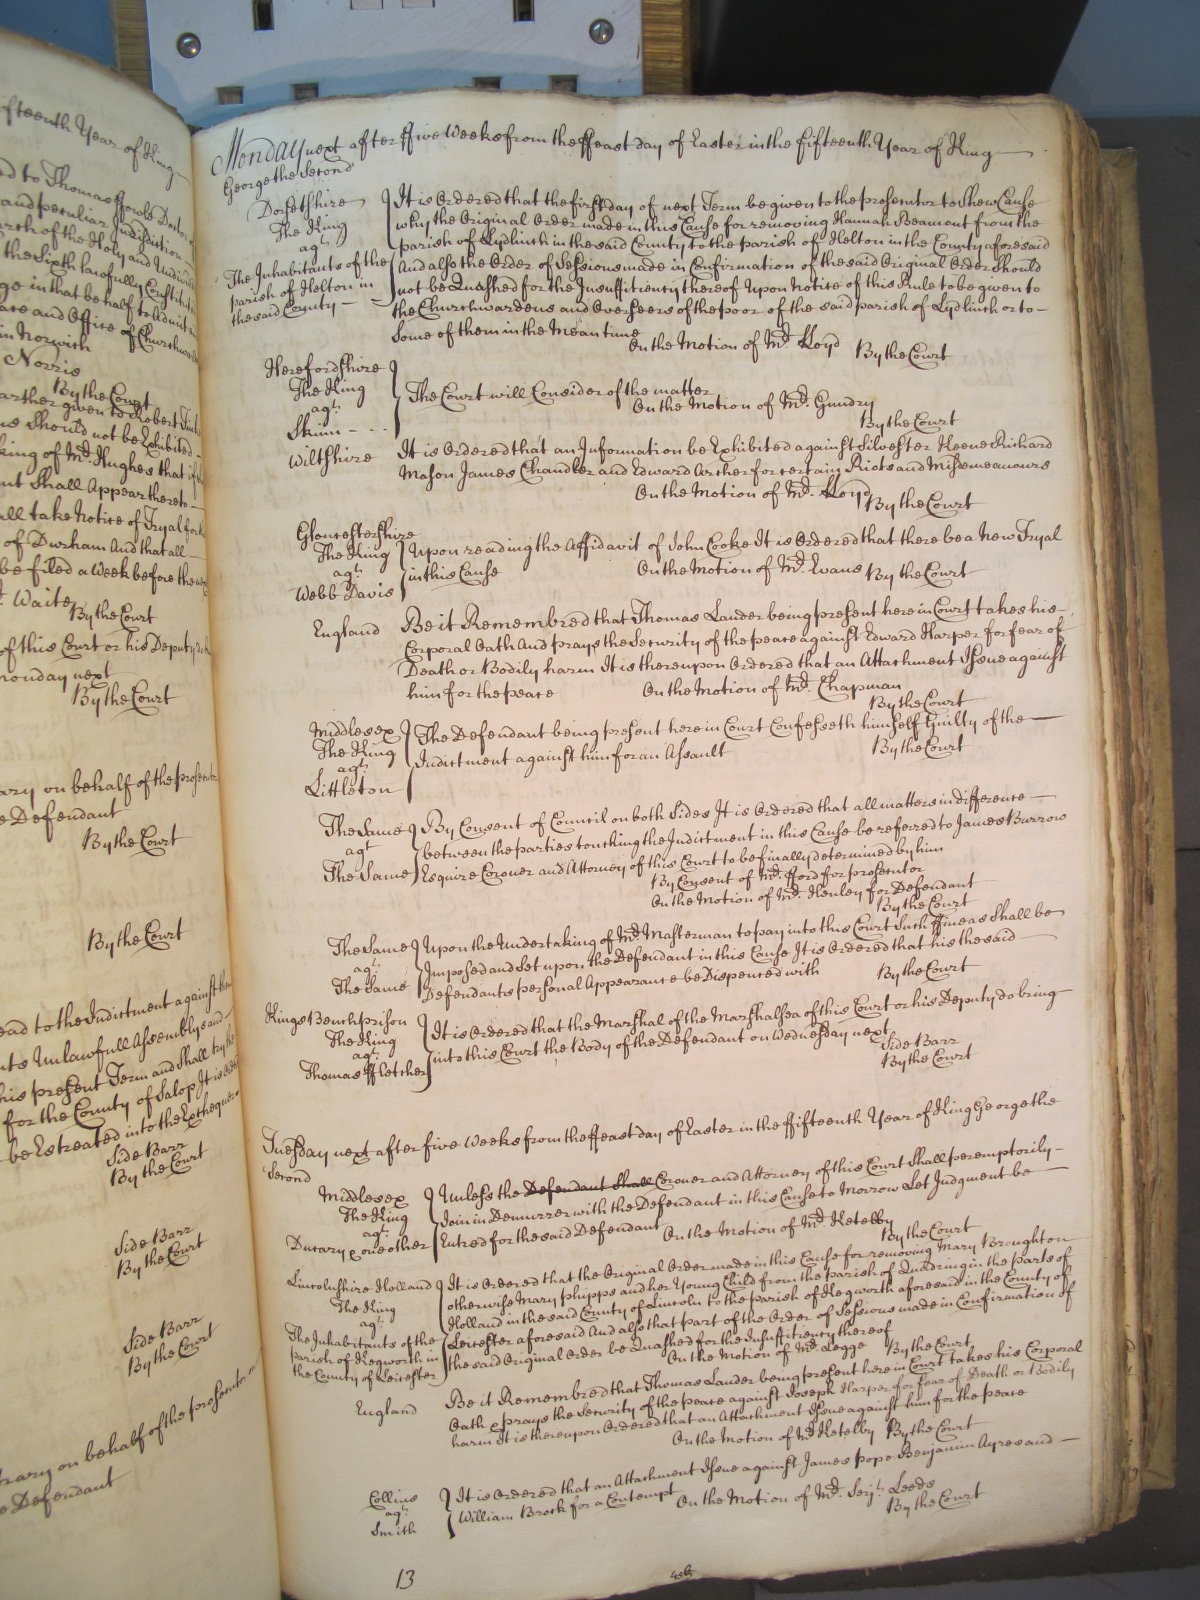 ifteenth Year of King
ed to Thomas ffowls Doctor
and peculiar Jurisdiction
urch of the Holy and Undivid
the Sixth lawfully Constitut
ge in that behalf to Admit
ace and Office of Churchwar
in Norwich
Norris
By the Court
arther given to Robert
ne Should not be Exhibited
king of Mr. Hughes that if
nt Shall Appear thereto
all take Notice of Tryal for
of Durham And that all
be filed a Week before the
Waite
By the Court
of this Court or his Deputy do
monday next
By the Court
ary on behalf of the prosecutor
e Defendant
By the Court
By the Court
ead to the Indictment against
nts Unlawfull Assemblys and
his present Term and Shall try the
for the County of Salop It is
be Estreated into the Exchequer
Side Barr
By the Court
Side Barr
By the Court
Side Barr
By the Court
trary on behalf of the prosecutor
e Defendant
Monday next after ffive Weeks from the ffeast day of Easter in the fifteenth Year of King
George the Second
Dorsetshire
The King
agt.
The Inhabitants of the
parish of Helton in
the said County
It is Ordered that the first day of next Term be given to the prosecutor to Shew Cause
why the Original Order made in this Cause for removing Hannah Beamont from the
parish of Lydlinch in the said County to the parish of Helton in the County aforesaid
And also the Order of Sessions made in Confirmation of the said Original Order Should
not be Quashed for the Insufficiency thereof Upon Notice of this Rule to be given to
the Churchwardens and Overseers of the poor of the said parish of Lydlinch or to
Some of them in the Mean time
On the Motion of Mr. Lloyd By the Court
Herefordshire
The King
agt.
Skinn
The Court will Consider of the matter
On the Motion of Mr. Gundry
By the Court
Wiltshire
It is Ordered that an Information be Exhibited against Silvester Keene Richard
Mason James Chandler and Edward Archer for certain Riots and Misdemeanours
On the Motion of Mr. Lloyd By the Court
Gloucestershire
The King
agt.
Webb Davis
Upon reading the Affidavit of John Cooke It is Ordered that there be a New Tryal
in this Cause On the Motion of Mr. Evans By the Court
England
Be it Remembred that Thomas Lander being present here in Court takes his
Corporal Oath And prays the Security of the peace against Edward Harper for fear of
Death or Bodily harm It is thereupon Ordered that an Attachment Issue against
him for the peace On the Motion of Mr. Chapman
By the Court
Middlesex
The King
agt.
Littleton
The Defendant being present here in Court Confesseth himself Guilty of the
Indictment against him for an Assault By the Court
The Same
agt
The Same
By Consent of Council on both Sides It is Ordered that all matters in difference
between the parties touching the Indictment in this Cause be referred to James Burrow
Esquire Coroner and Attorney of this Court to be finally determined by him
By Consent of Mr. fford for prosecutor
On the Motion of Mr. Henley for Defendant
By the Court
The Same
agt.
The Same
Upon the Undertaking of Mr. Masterman to pay into this Court Such ffine as Shall be
Imposed and Set upon the Defendant in this Cause It is Ordered that his the said
Defendants personal Appearance be Dispenced with By the Court
Kings Bench prison
The King
agt.
Thomas ffletcher
It is Ordered that the Marshal of the Marshalsea of this Court or his Deputy do bring
into this Court the Body of the Defendant on Wednesday next
Side Barr
By the Court
Tuesday next after five Weeks from the ffeast day of Easter in the ffifteenth Year of King George the
Second
Middlesex
The King
agt.
Dutary & one other
Unless the Defendant Shall Coroner and Attorney of this Court Shall peremptorily
Join in Demurrer with the Defendant in this Cause to Morrow Let Judgment be
Entred for the said Defendant On the Motion of Mr. Ketelby
By the Court
Lincolnshire Holland
The King
agt.
The Inhabitants of the
parish of Kegworth in
the County of Leicester
It is Ordered that the Original Order made in this Cause for removing Mary Broughton
otherwise Mary phipps and her Young Child from the parish of Quadring in the parts of
Holland in the said County of Lincoln to the parish of Kegworth aforesaid in the County of
Leicester aforesaid And also that part of the Order of Sessions made in Confirmation of
the said Original Order be Quashed for the Insufficiency thereof
On the Motion of Mr. Legge By the Court
England
Be it Remembred that Thomas Lander being present here in Court takes his Corporal
Oath & prays the Security of the peace against Joseph Harper for fear of Death or Bodily
harm It is thereupon Ordered that an Attachment Issue against him for the peace
On the Motion of Mr. Ketelby By the Court
Collins
agt.
Smith
It is Ordered that an Attachment Issue against James pope Benjamin Ayres and
William Brock for a Contempt On the Motion of Mr. Serjt. Leeds
By the Court
13